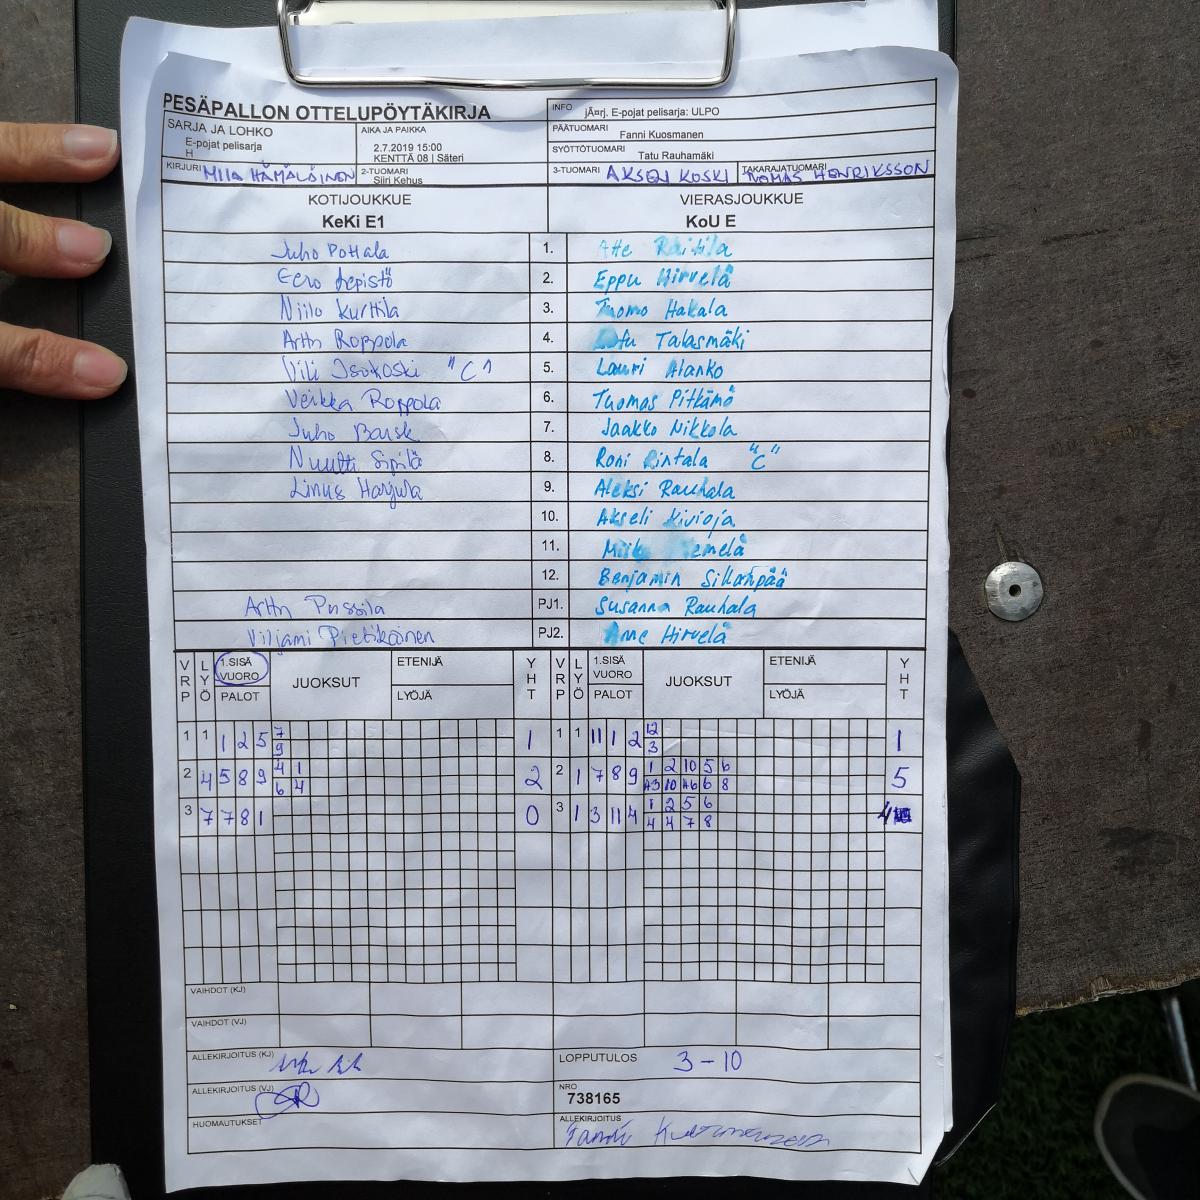 PESÄPALLON OTTELUPÖYTÄKIRJA
INFO jÄ¤rj. E-pojat pelisarja: ULPO
SARJA JA LOHKO
E-pojat pelisarja
H
AIKA JA PAIKKA
2.7.2019 15:00
KENTTÄ 08 | Säteri
PÄÄTUOMARI Fanni Kuosmanen
SYÖTTÖTUOMARI Tatu Rauhamäki
KIRJURI MIIA HÄMÄLÄINEN
2-TUOMARI
Siiri Kehus
3-TUOMARI AKSELI KOSKI
TAKARAJATUOMARI TUOMAS HENRIKSSON
KOTIJOUKKUE
KeKi E1
VIERASJOUKKUE
KoU E
Juho Pottala 1. Atte Raitila
Eero Lepistö 2. Eppu Hirvelä
Niilo Kurttila 3. Tuomo Hakala
Arttu Roppola 4. Talasmäki
Vili Isokoski "C" 5. Lauri Alanko
Veikka Roppola 6. Tuomas Pitkämö
Juho Barsk 7. Jaakko Nikkola
Nuutti Sipilä 8. Roni Rintala "C"
Linus Harjula 9. Aleksi Rauhala
10. Akseli Kivioja
11. Niemelä
12. Benjamin Sillanpää
Arttu Pussila PJ1. Susanna Rauhala
Viljami Pietikäinen PJ2. Anne Hirvelä
VRP LYÖ 1.SISÄ VUORO PALOT JUOKSUT ETENIJÄ LYÖJÄ YHT VRP LYÖ 1.SISÄ VUORO PALOT JUOKSUT ETENIJÄ LYÖJÄ YHT
1 1 1 2 5 7 1 1 1 11 1 2 12 1
9 3
2 4 5 8 9 4 1 2 2 1 7 8 9 1 2 10 5 6 5
6 4 A3 10 A6 6 8
3 7 7 8 1 0 3 1 3 11 4 1 2 5 6 4
4 4 7 8
VAIHDOT (KJ)
VAIHDOT (VJ)
ALLEKIRJOITUS (KJ)
LOPPUTULOS 3-10
ALLEKIRJOITUS (VJ)
NRO
738165
HUOMAUTUKSET
ALLEKIRJOITUS
Fanni Kuosmanen